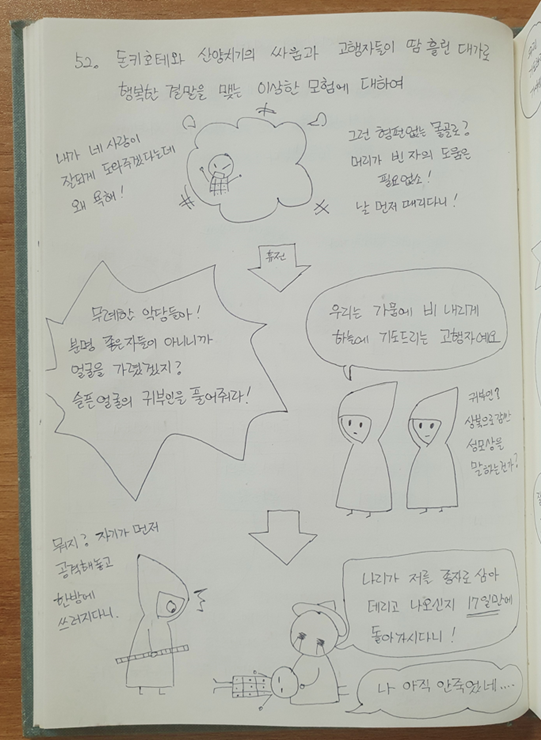 52. 돈키호테와 산양치기의 싸움과 고행자들이 땀 흘린 대가로
행복한 결말을 맺는 이상한 모험에 대하여
내가 네 사랑이
잘되게 도와주겠다는데
왜 욕해!
그런 형편없는 몰골로?
머리가 빈 자의 도움은
필요없소!
날 먼저 때리다니!
휴전
무례한 악당들아!
분명 좋은자들이 아니니까
얼굴을 가렸겠지?
슬픈 얼굴의 귀부인을 풀어줘라!
우리는 가뭄에 비 내리게
하늘에 기도드리는 고행자예요
귀부인?
상복으로 감싼
성모상을
말하는건가?
뭐지? 자기가 먼저
공격해놓고
한방에
쓰러지다니.
나리가 저를 종자로 삼아
데리고 나오신지 17일만에
돌아가시다니!
나 아직 안죽었네....